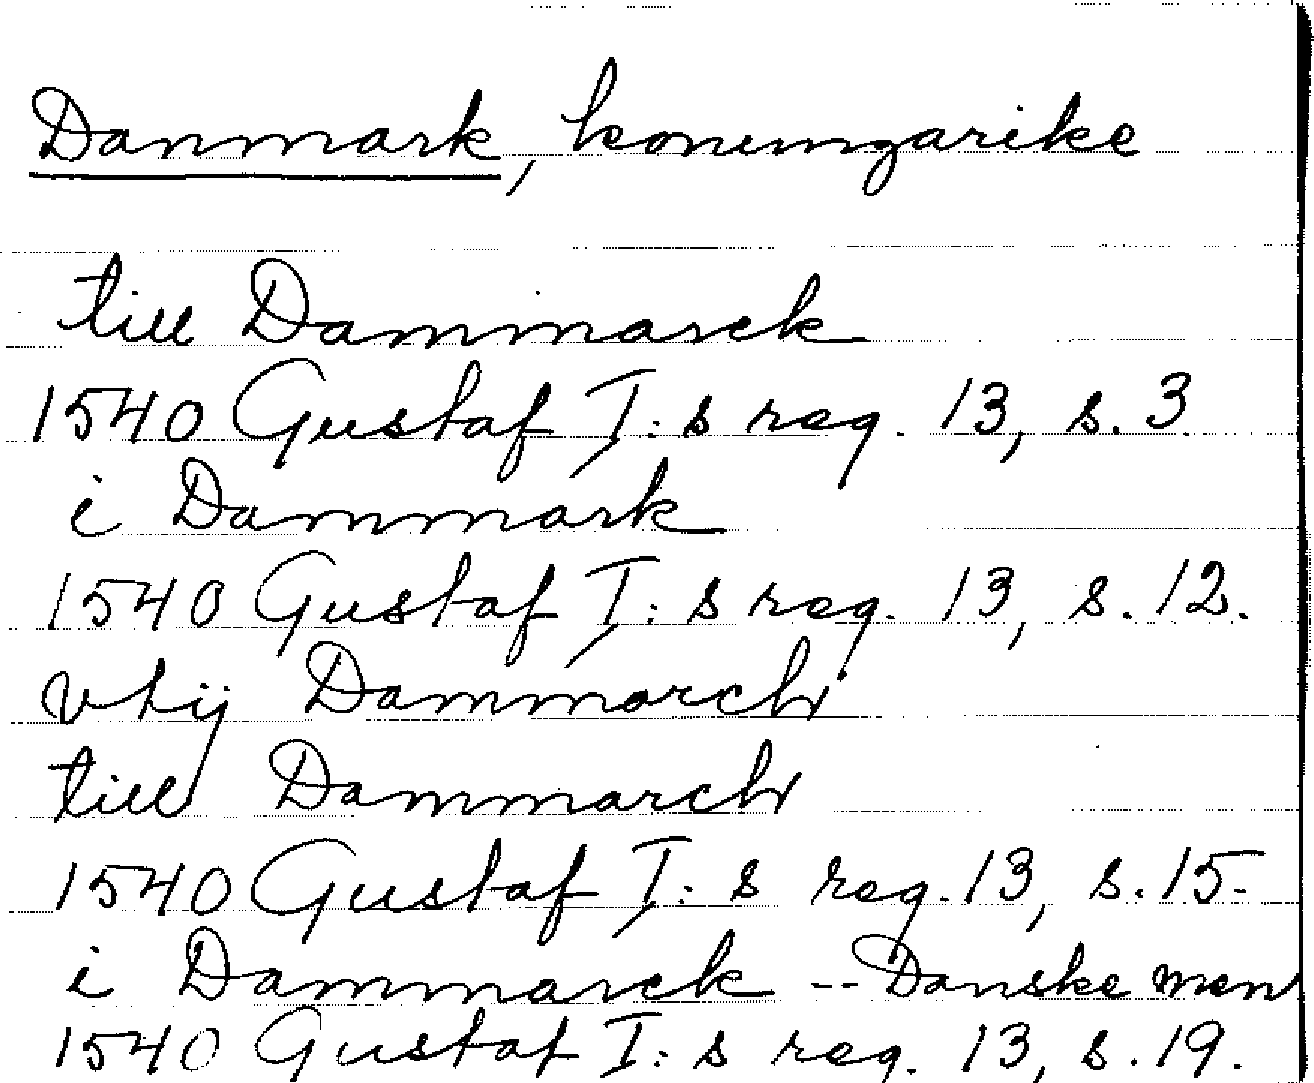 Danmark, konungarike
till Danmarck
1540 Gustaf I:s reg. 13, s. 3.
i Danmark
1540 Gustaf I:s reg. 13, s. 12.
vtij Danmarch
till Danmarch
1540 Gustaf I:s reg. 13, s. 15.
i Danmarck -- Danske men
1540 Gustaf I:s reg. 13, s. 19.